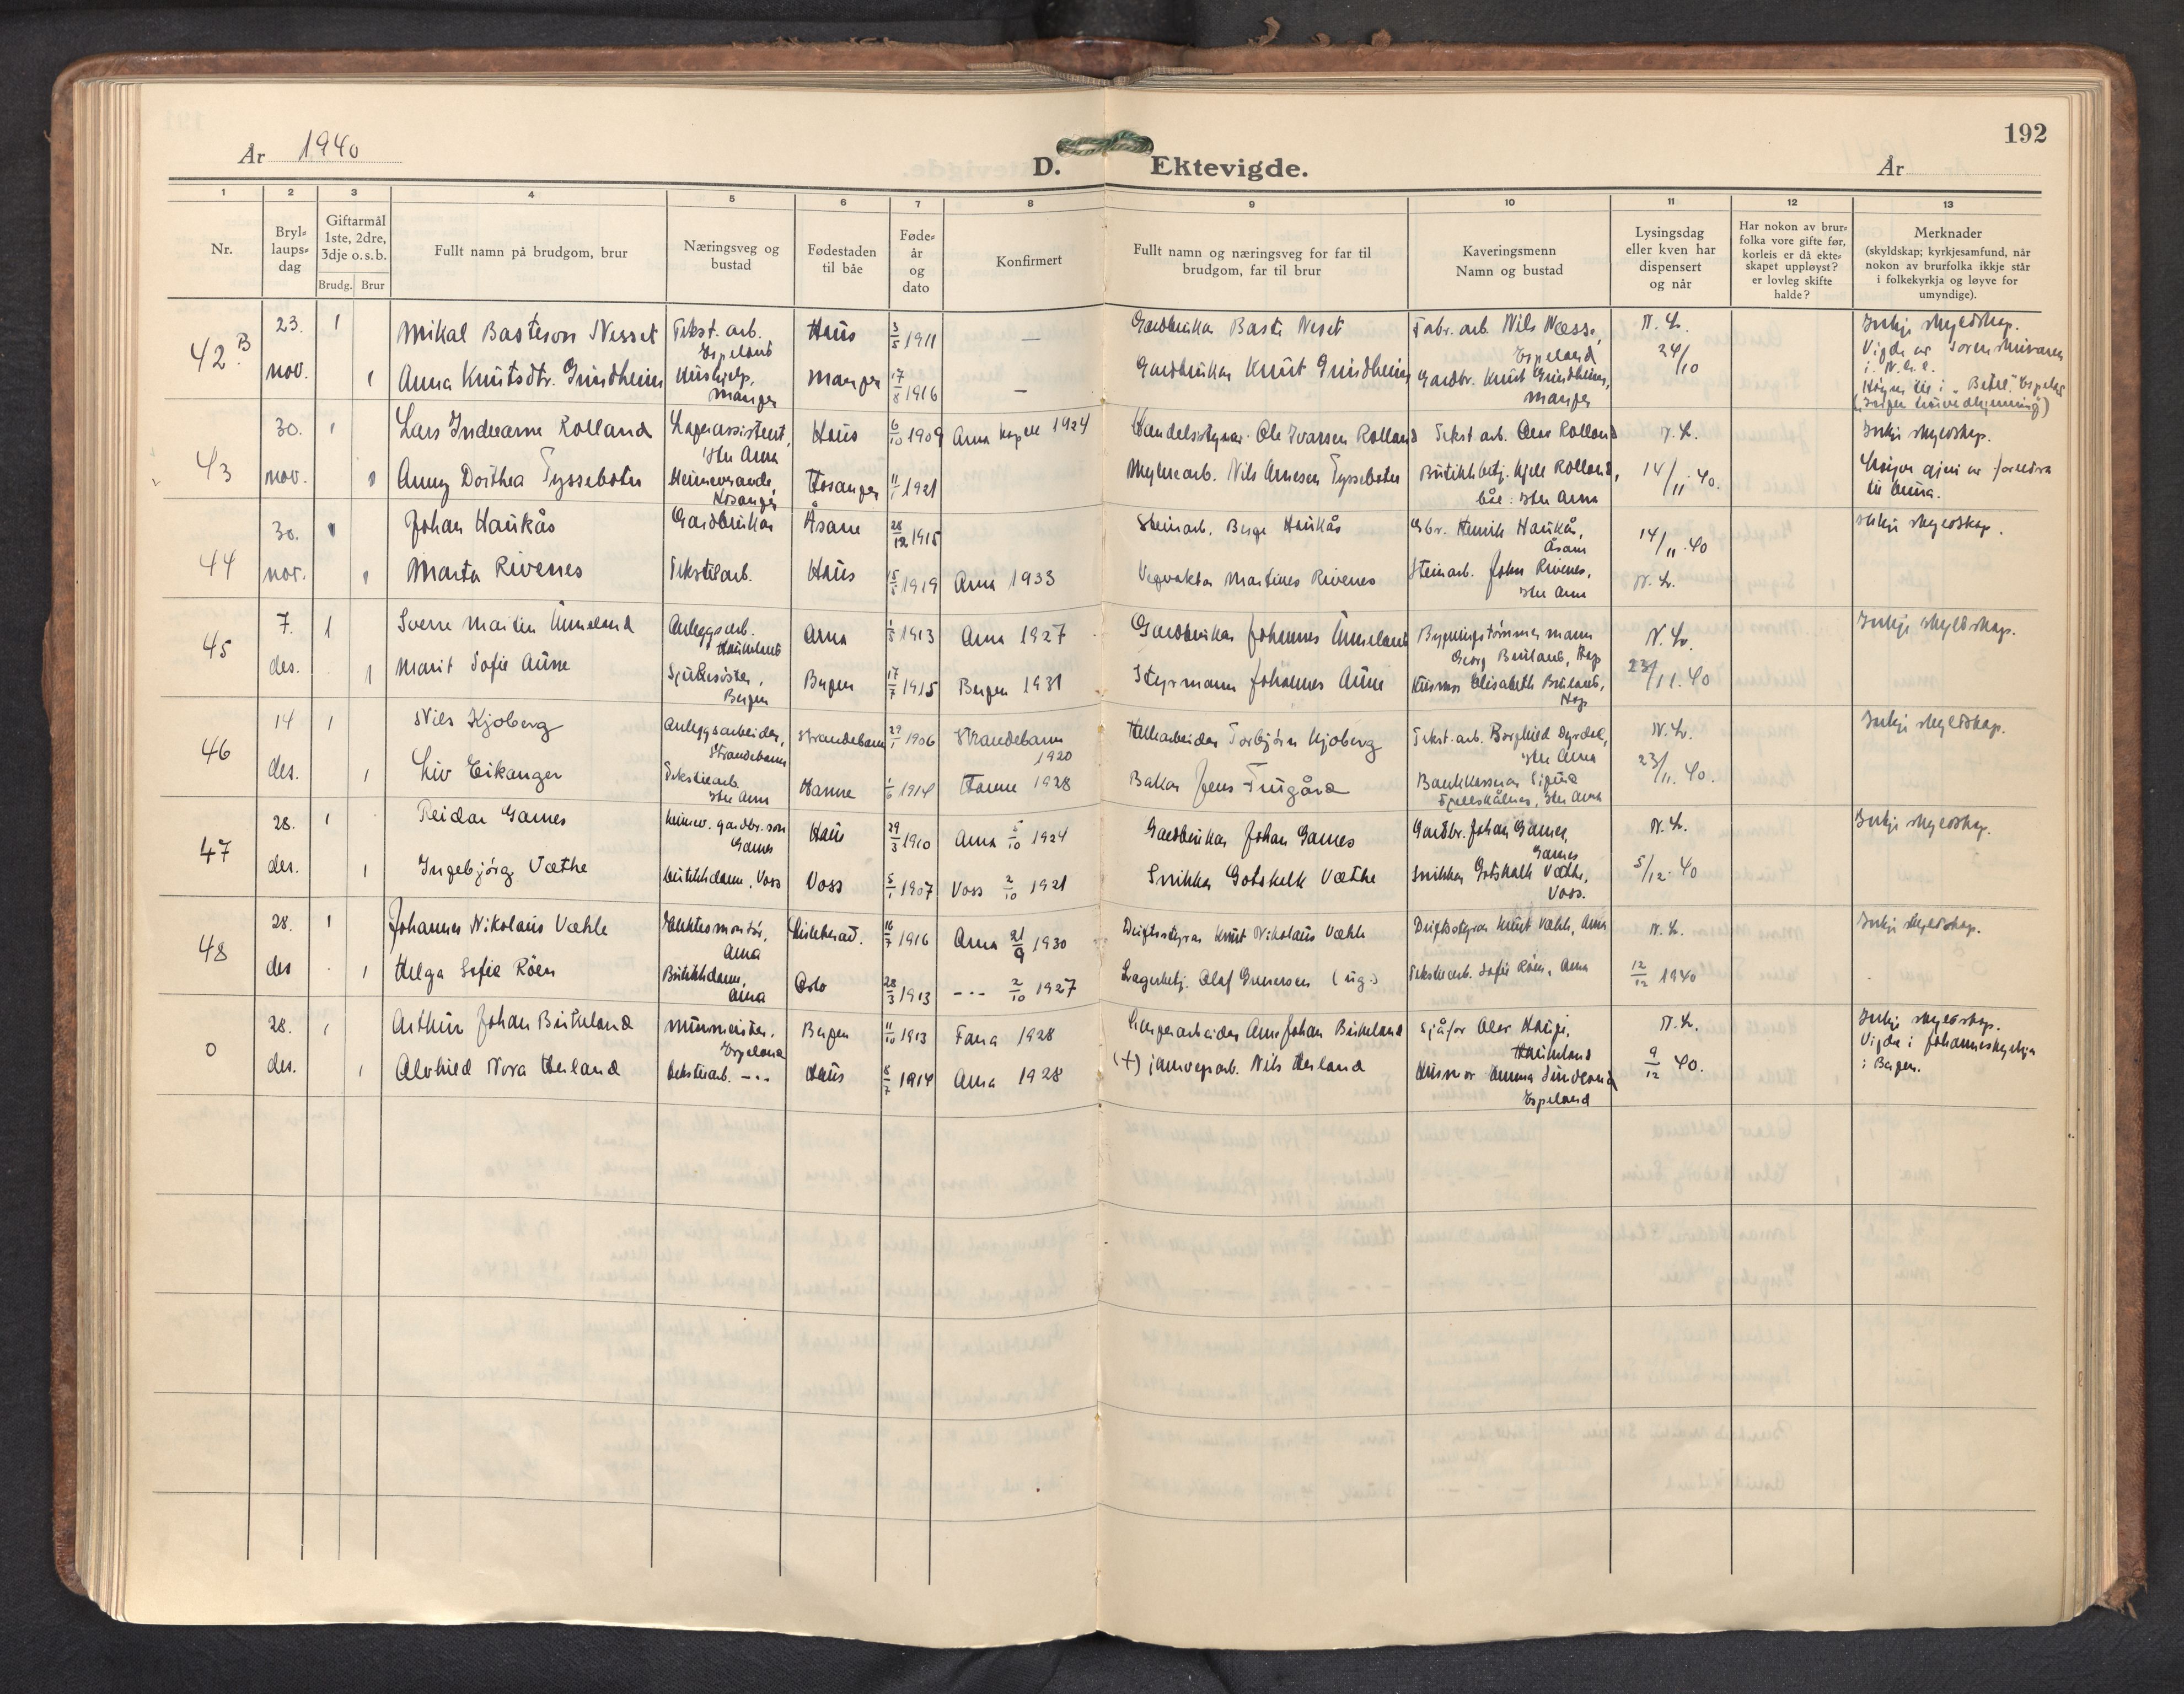 192
År 1940
D. Ektevigde.
År
1 2 3 4 5 6 7 8 9 10 11 12 13
Nr.
Bryl-
laups-
dag
Giftarmål
1ste, 2dre,
3dje o.s.b.
Brudg. Brur
Fullt namn på brudgom, brur
Næringsveg og
bustad
Fødestaden
til båe
Føde-
år
og
dato
Konfirmert
Fullt namn og næringsveg for far til
brudgom, far til brur
Kaveringsmenn
Namn og bustad
Lysingsdag
eller kven har
dispensert
og når
Har nokon av brur-
folka vore gifte før,
korleis er då ekte-
skapet uppløyst?
er lovleg skifte
halde?
Merknader
(skyldskap; kyrkjesamfund, når
nokon av brurfolka ikkje står
i folkekyrkja og løyve for
umyndige).
42 B 23. 1 Mikal Basteson Nesset Tekst. arb. Espeland Haus 3/5 1911 — Gardbrukar Basti Neset Fabr. arb. Nils Næss, Espeland N. L. Inkje skyldskap.
nov. 1 Anna Knutsdtr. Grindheim Hushjelp, Manger Manger 17/8 1916 — Gardbrukar Knut Grindheim Gardbr. Knut Grindheim, Manger 24/10 Vigde av Sorenskrivaren
i N.H.L.
43 30. 1 Lars Indrearne Rolland Lagerassistent, Ytre Arna Haus 6/10 1909 Arna kapell 1924 Handelsstyrar Ole Ivarsen Rolland Tekst arb. Olav Rolland N. L. Inkje skyldskap.
nov. 1 Anny Dorthea Tyssebotn Heimeverande, Hosanger Hosanger 11/1 1921 Mylnearb. Nils Arnesen Tyssebotn Butikkbetj. Kjell Rolland, båe: Ytre Arna 14/11 40. Løyve gjeve av foreldra
til Anna.
44 30. 1 Johan Haukås Gardbrukar Åsane 28/12 1915 Steinarb. Berge Haukås Gbr. Henrik Haukås, Åsane 14/11 40 Inkje skyldskap.
nov. 1 Marta Rivenes Tekstilarb. Haus 15/5 1919 Arna 1933 Vegvaktar Martines Rivenes Steinarb. John Rivenes, Ytre Arna N. L.
45 7. 1 Sverre Martin Unneland Anleggsarb. Haukeland Arna 1/5 1913 Arna 1927 Gardbrukar Johannes Unneland Bygningstømmermann Georg Birkeland, Hop N. L. Inkje skyldskap.
des. 1 Marit Sofie Aune Sjukesøster, Bergen Bergen 17/7 1915 Bergen 1931 Styrmann Johannes Aune Husmor Elisabeth Birkeland, Hop 23/11. 40
46 14 1 Nils Kjoberg Anleggsarbeidar, Strandebarm Strandebarm 29/1 1906 Strandebarm 1920 Torbjörn Kjoberg Tekst. arb. Borghild Dyrdal, Ytre Arna N. L. Inkje skyldskap.
des. 1 Liv Eikanger Tekstilarb. Ytre Arna Hamre 1/6 1914 Hamre 1928 Bakar Jens Bankkasserar Ytre Arna 23/11. 40.
47 28. 1 Reidar Garnes heimev. gardbr. son Garnes Haus 29/3 1910 Arna 5/10 1924 Gardbrukar Johan Garnes Gardbr. Johan Garnes, Garnes N. L. Inkje skyldskap.
des. 1 Ingebjörg Væthe butikkdame, Voss Voss 5/1 1907 Voss 2/10 1921 Snikkar Gotskalk Væthe Snikkar Gotskalk Væthe, Voss. 5/12. 40
48 28. 1 Johannes Nikolaus Væhle Elektromontør, Arna 16/7 1916 Arna 21/9 1930 Driftsstyrar Knut Nikolaus Væhle Driftsstyrar Knut Væhle, Arna N. L. Inkje skyldskap.
des 1 Helga Sofie Röen Butikkdame, Arna Oslo 28/3 1913 -"- 2/10 1927 Lagerbetj. Olaf Gunnersen (ug.) Tekstilarb. Sofie Röen, Arna 12/12 1940
0 28. 1 Arthur Johan Birkeland Murmeister, Espeland Bergen 11/10 1913 Fana 1928 Arne Johan Birkeland Sjåfør Olav Hauge, Haukeland N. L. Inkje skyldskap.
Vigde i Johanneskyrkja
i Bergen.
des. 1 Alvhild Nora Herland tekstilarb. -"- Haus 8/7 1914 Arna 1928 (+) jarnvegarb. Nils Herland Husmor Emma Espeland 9/12 40.